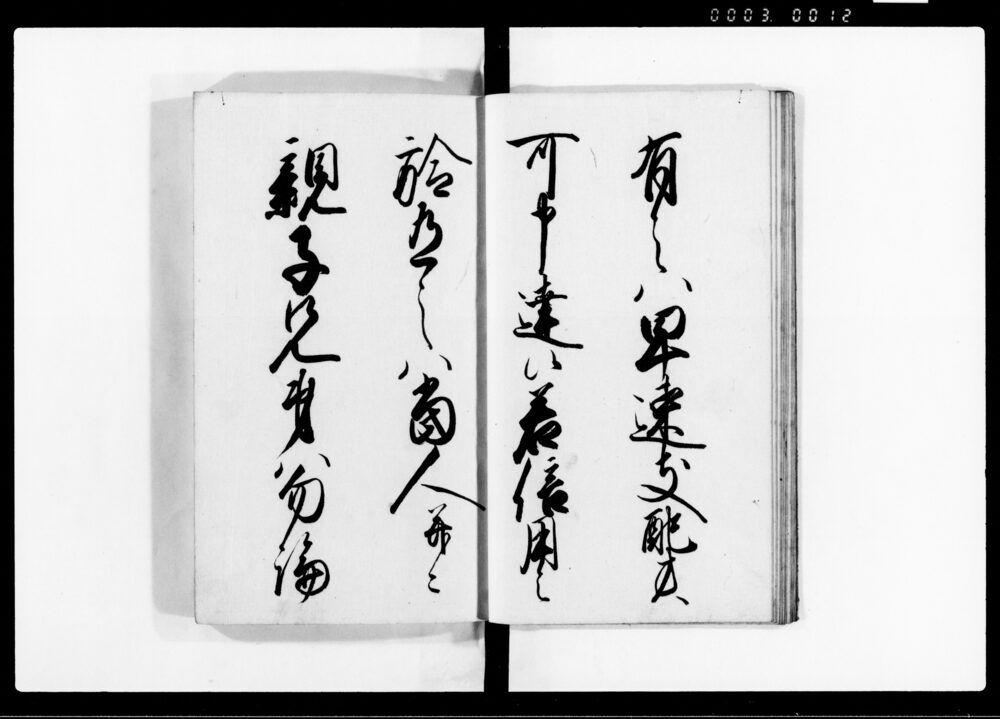 0003 0012
有之ハ早速支配夫
可申達候若信用之
於有之ハ当人并ニ
親子兄弟ハ勿論